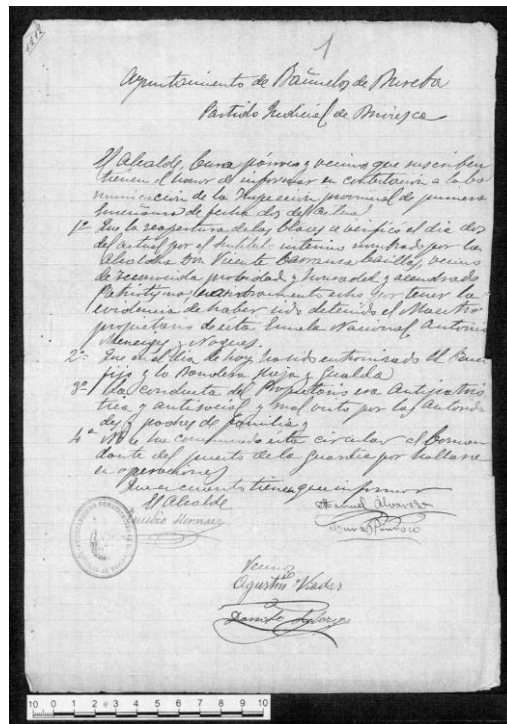 1
Ayuntamiento de Bañuelos de Bureba
Partido Judicial de Briviesca
El Alcalde, Cura párroco y vecinos que suscriben
tienen el honor de informar en contestación a la co
municación de la Inspección provincial de primera
Enseñanza de fecha dos del actual
1º Que la reapertura de las Clases se verificó el día dos
del actual por el sustituto interino nombrado por la
Alcaldia Don Vicente Carranza vecino
de reconocida probidad y honradez y acendrado
Patriotismo, nombramiento echo por tener la
evidencia de haber sido detenido el Maestro
propietario de esta Escuela Nacional Antonio
2º Que en el día de hoy ha sido entronizado El Cruci
fijo y la Bandera Roja y Gualda
3º La conducta del Propietario era Antipatrio
tica y antisocial y mal visto por las Autorida
des y padres de familia y
4º No le he comunicado esta circular al Coman
dante del puesto de la guardia por hallarse
en operaciones
Que es cuanto tienen que informar
El Alcalde
Hernaez
Manuel Alvarez
Cura Párroco
Vecinos
Agustín Viadas
10 0 1 2 3 4 5 6 7 8 9 10